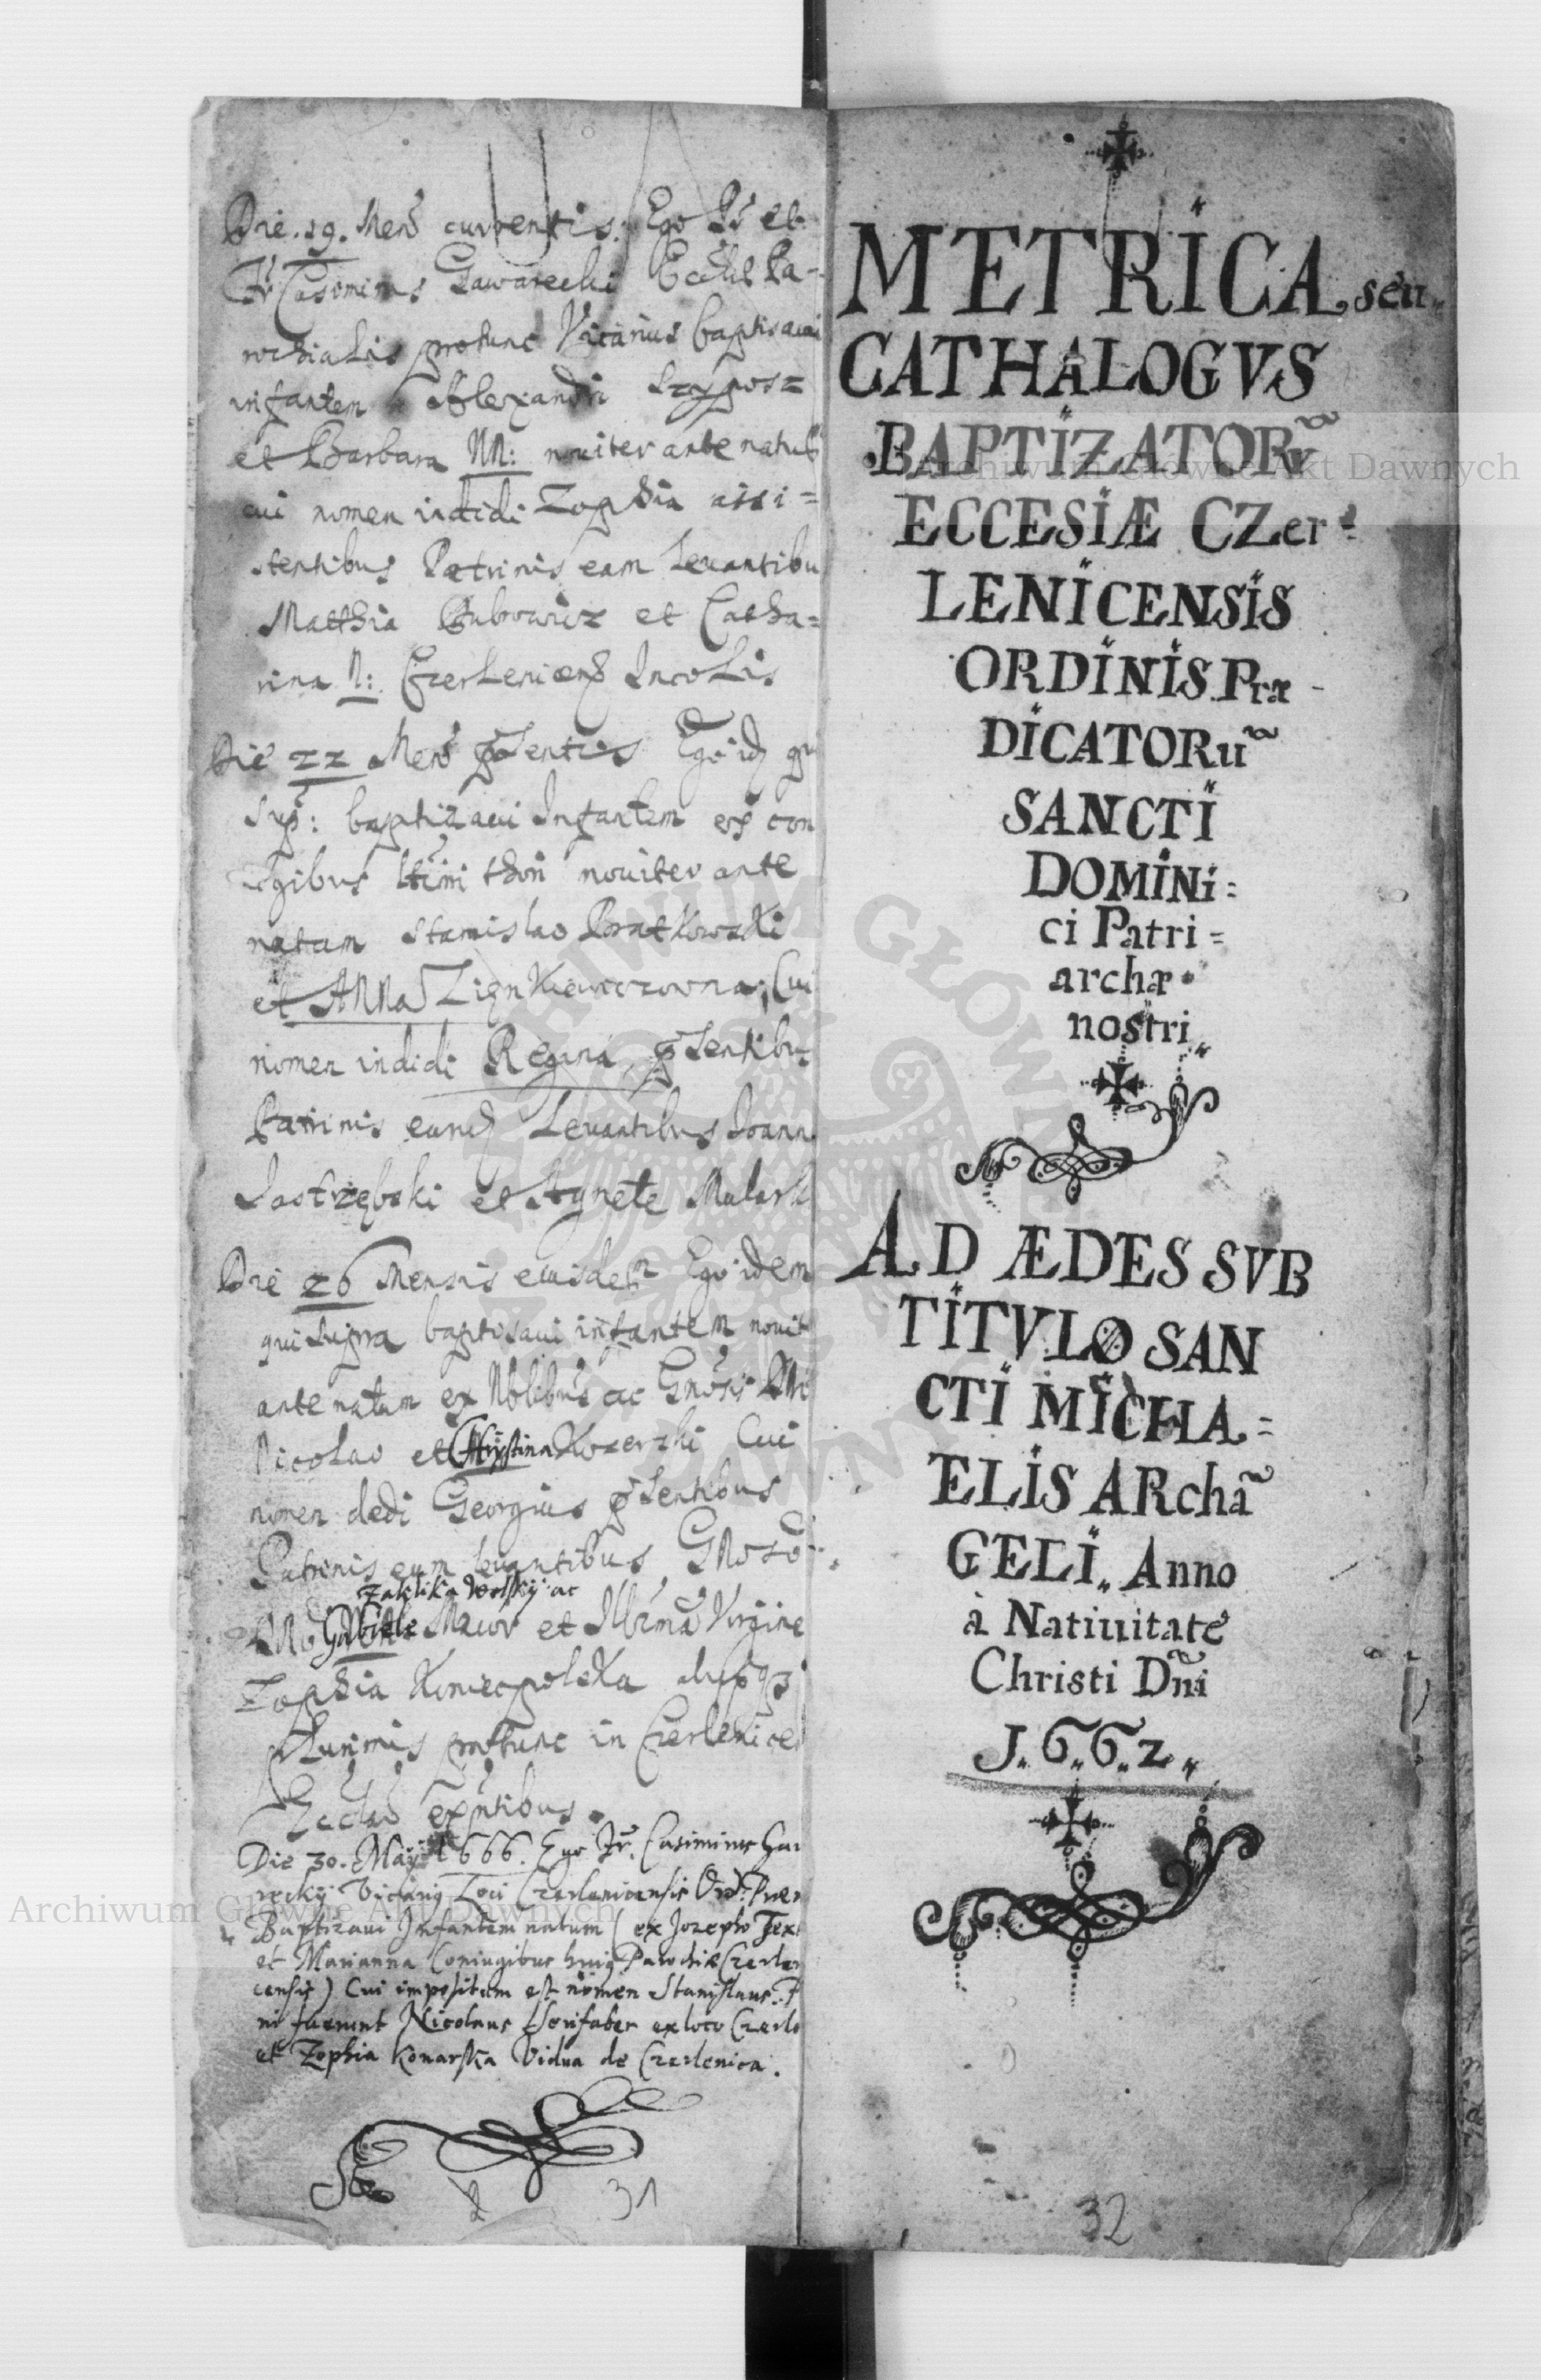 Die . 19 . Mens̃ currentis. Ego Pr̃ et
Fr̃ Casimirus Gawarecki Eccłłs Pa-
rochialis protunc Vicarius baptisaui
infantem Alexandri
et Barbara NN: noviter ante natus
cui nomen indidi Zophia assi=
stentibus Patrinis eam Levantibu
Matthia et Catha=
rina N: Czerlenicens̃ Incolis.
Die 22 Mens̃ p̃sentis Ego idẽ qui
sup̃: baptizaui Infantem ex con
iugibus noviter ante
natam Stanislao Bratkowski
et ANNa Zienkiewiczowna, Cui
nomen indidi Regina, p̃sentibu
Patrinis eand̃ Levantibus Joann
Jastrzębski et Agnete Mulark
Die 26 Mensis eiusdem Ego idem
qui supra baptisaui infantem novit
ante natum ex Nobilibus ac Gñosis
Nicolao et Chrystina Kozerski Cui
nomen dedi Georgius p̃sentibus
Patrinis eum levantibus, Gñoso
Zaklika Wolskij ac
Gabriele Maior et Illr̃ma Virgine
Zophia Koniecpolska alysq3
Plurimis protunc in Czerlenice
Eccła exñtibus.
Die 30. Maij 1666. Ego Fr. Casimirus Gau
recky Vicariq Loci Czerlenicensis Ord: Præ
Baptizaui Infantem natum ( ex Jozepho Tex
et Marianna Coniugibus huiq Parochiæ Czerlen
censis ) Cui impositum est nomen Stanislaus. P
ni fuerunt Nicolaus Serifaber ex loco Czerle
et Zophia Konarska Vidua de Czerlenica.
2 31
METRICA seu
CATHALOGVS
BAPTIZATORũ
ECCESIÆ CZer=
LENICENSIS
ORDINIS Præ-
DICATORũ
SANCTI
DOMINi=
ci Patri=
archæ
nostri
AD ÆDES SVB
TITVLO SAN
CTI MICHA=
ELIS ARchã
GELI,, Anno
à Natiuitate
Christi Dñi
J.,6.,6.,2.,
32
Archiwum Główne Akt Dawnych
Archiwum Główne Akt Dawnych
ARCHIWUM GŁÓWNE AKT DAWNYCH